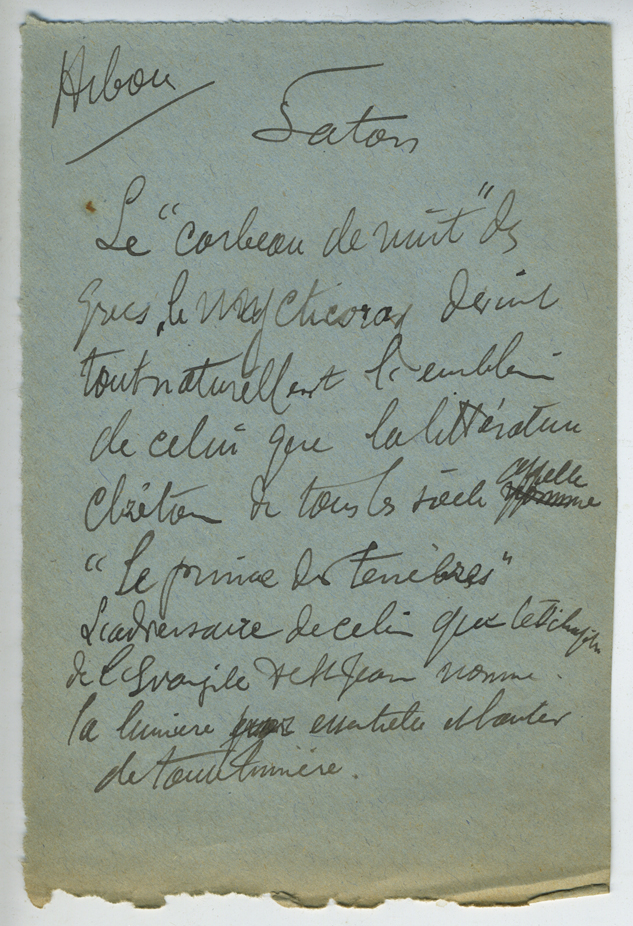 Hibou
Satan
Le "corbeau de nuit" des
Grecs, le Nycticorax devint
tout naturellement l'emblème
de celui que la littérature
Chrétienne de tous les siècles appelle
"Le prince des Tenèbres"
L'adversaire de celui que le 1er chapitre
de l'Evangile de St Jean nomme
la lumière et l'auteur
de toute lumière.